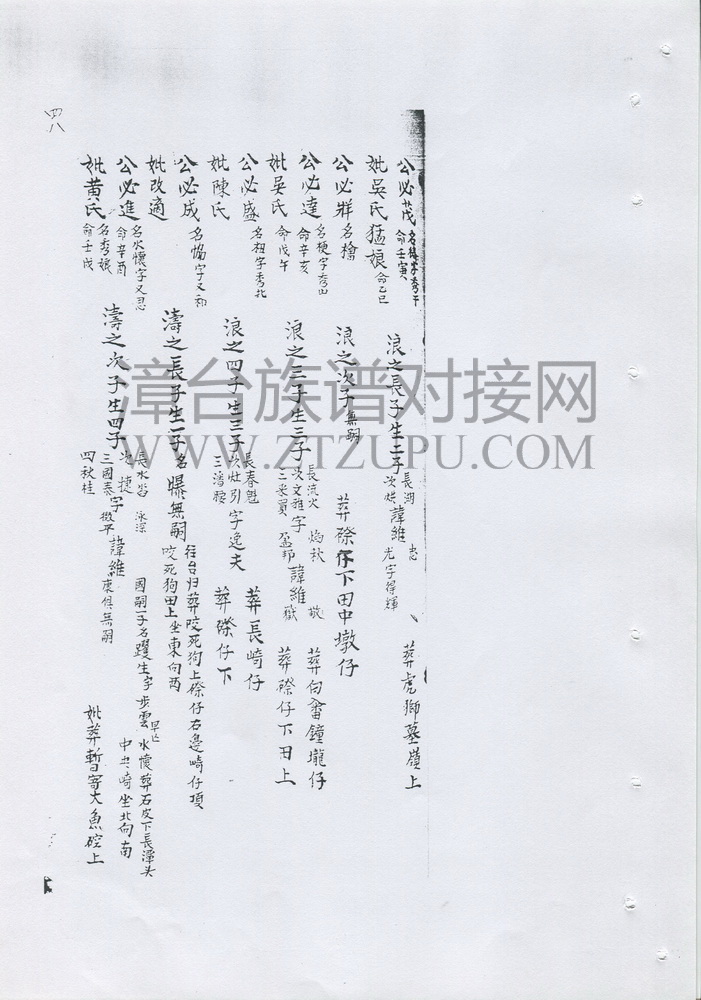 公必茂 名 字秀千 命壬寅 浪之長子生二子 長湖 次烘 諱維 忠 尤字得輝 葬虎獅墓嶺上
妣吳氏猛娘 命乙巳
公必祥 名檜 浪之次子無嗣 葬磜仔下田中墩仔
公必達 名梗字秀山 命辛亥 浪之三子生三子 長流火 次文雅 三米買 字 焰秋 盈郎 諱維 敬 嶽 葬向畬鐘壠仔
妣吳氏 命戊午 葬磜仔下田上
公必盛 名祖字秀北 浪之四子生三子 長春魁 次灶引字逸夫 三潘腰 葬長崎仔
妣陳氏 葬磜仔下
公必成 名惱字又和 濤之長子生一子名爆無嗣 往台归葬咬死狗上磜仔右邊崎仔項
妣改適 咬死狗田上坐東向酉
公必進 名水懷字又忍 命辛酉 濤之次子生四子 長水 次捷 三國泰 四秋桂 字 泳深 微平 諱維 康俱無嗣 國嗣一子名躍生字步雲早亡 水懷葬石皮下長潭头 中 崎坐北向南
妣黄氏 名秀娘 命壬戌 妣葬暫寄大魚硿上
四八
漳台族谱对接网
WWW.ZTZUPU.COM